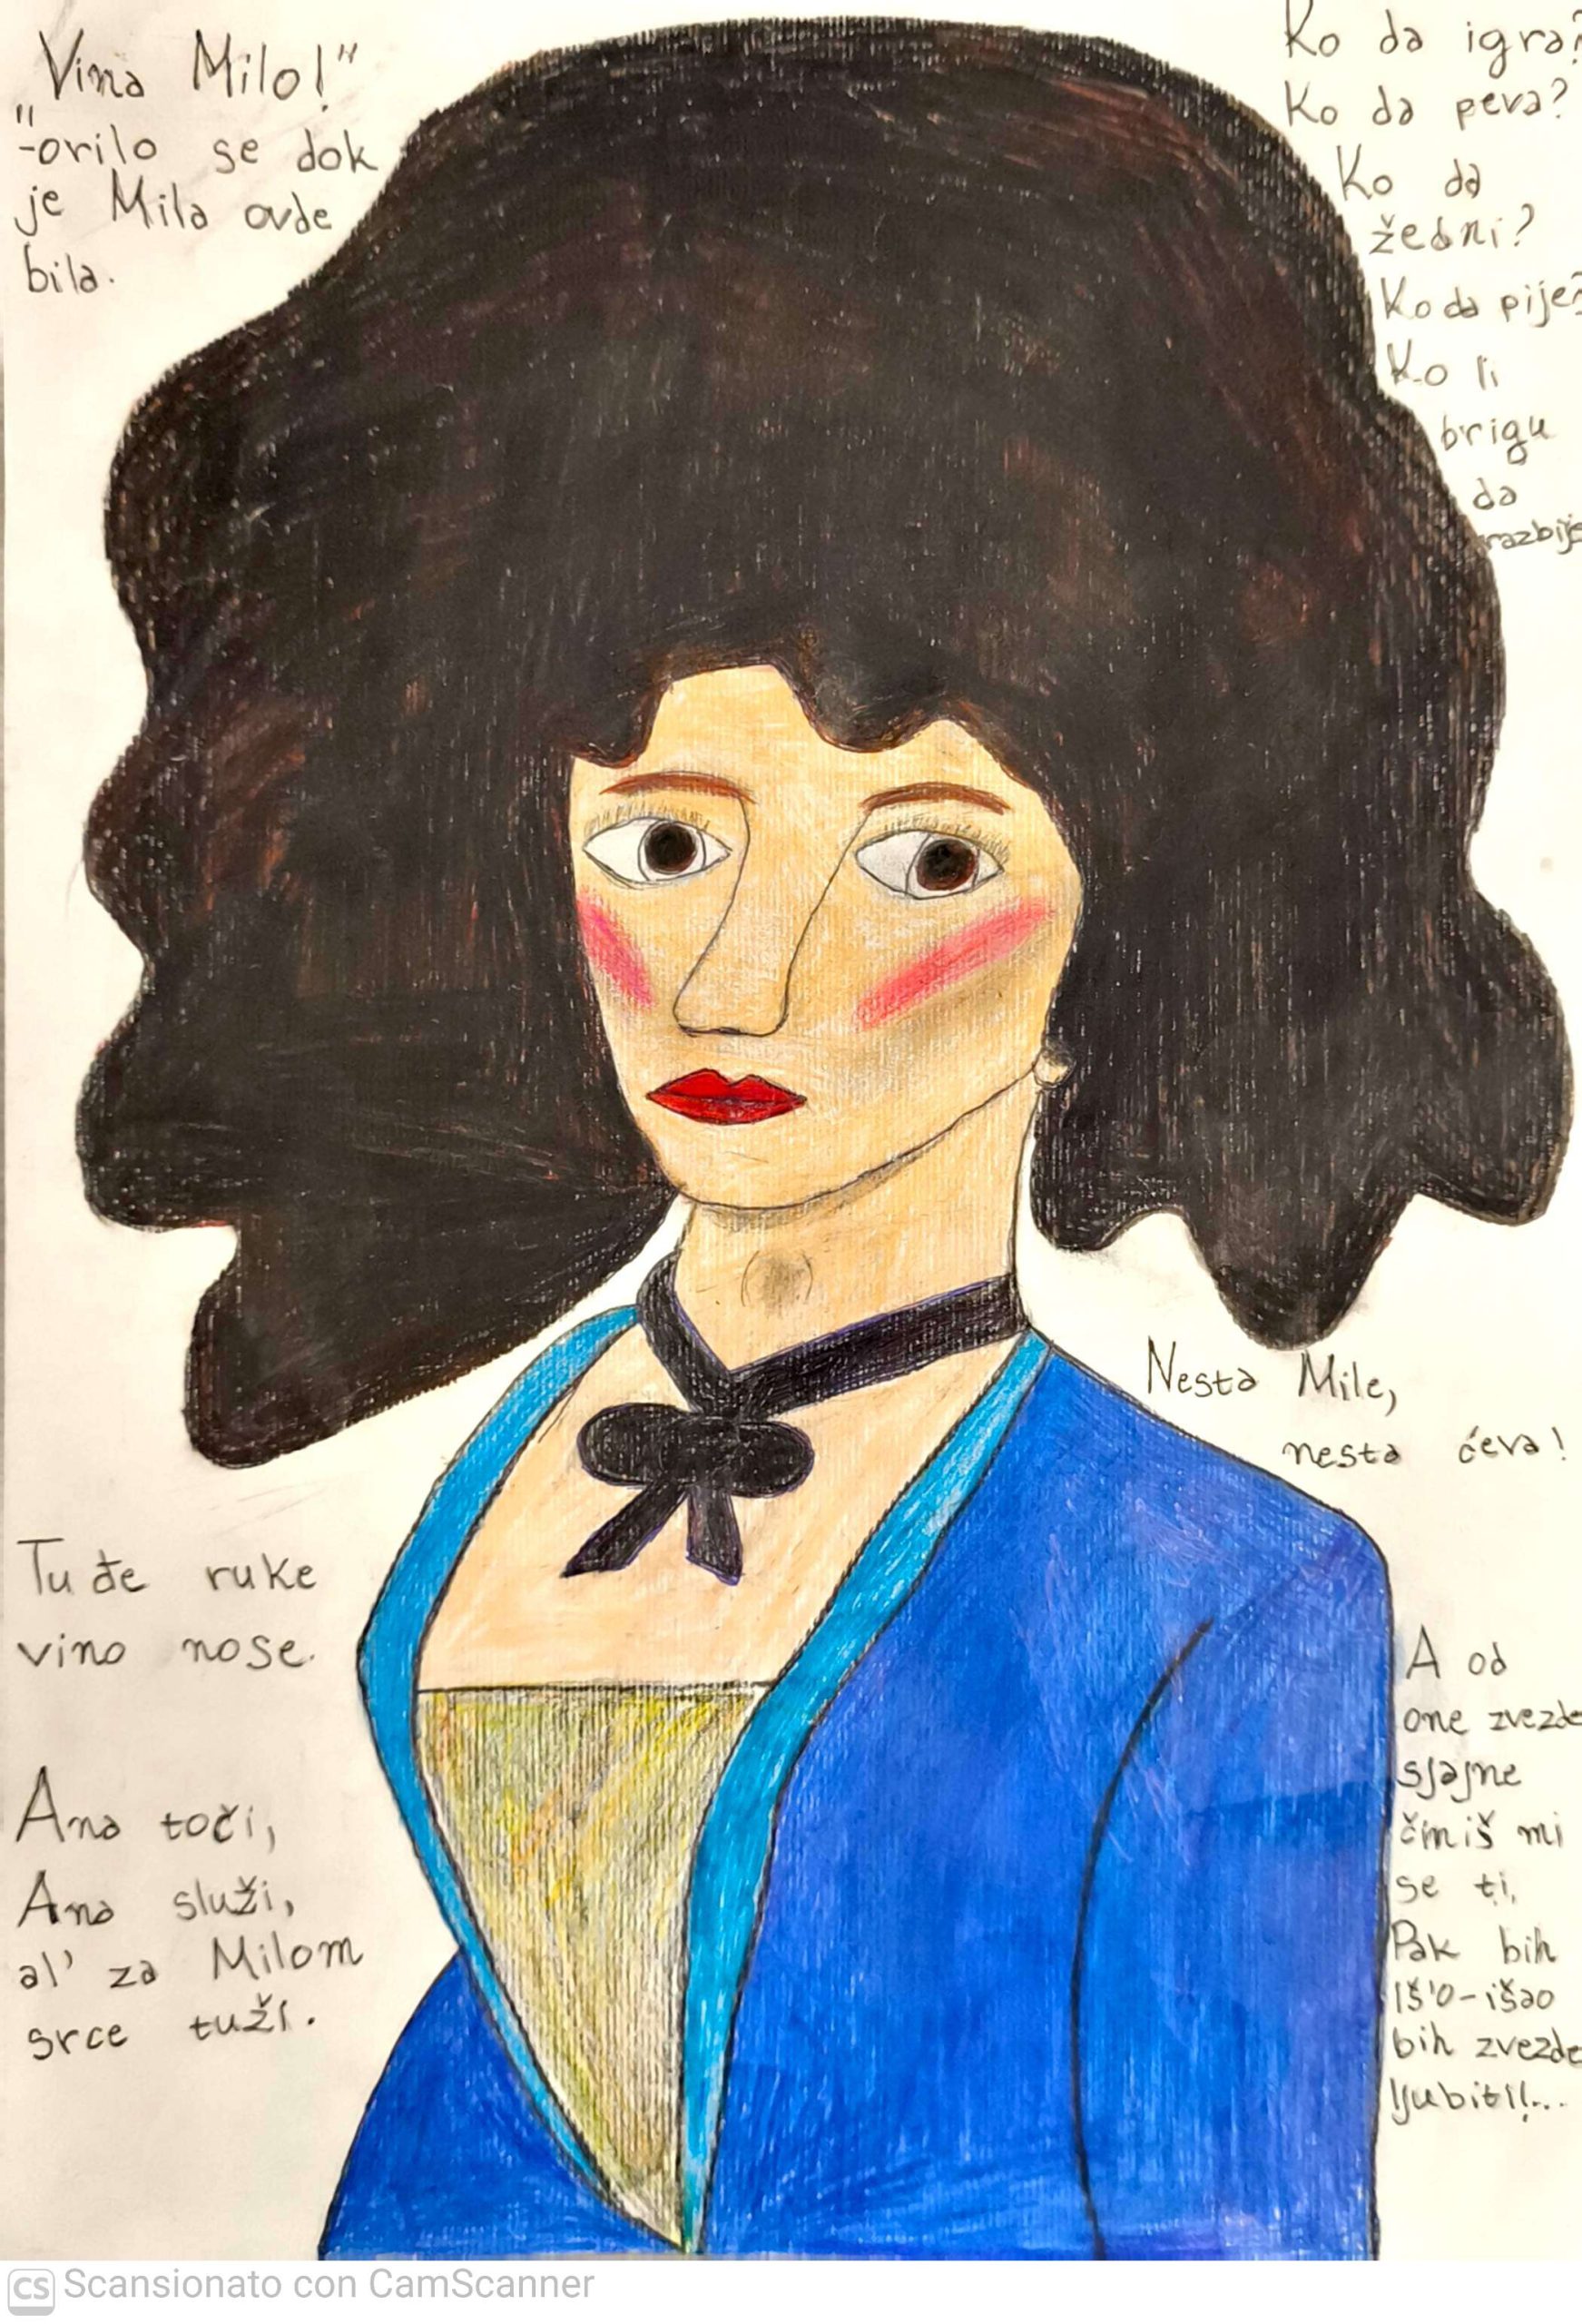 Vina Milo!"
"-orilo se dok
je Mila ovde
bila.
Ko da igra?
Ko da peva?
Ko da
žedni?
Ko da pije?
Ko li
brigu
da
razbije
Nesta Mile,
nesta ćeva!
Tuđe ruke
vino nose.
Ana toči,
Ana služi,
al' za Milom
srce tuži.
A od
one zvezde
sjajne
čmiš mi
se ti,
Pak bih
iš'o-išao
bih zvezde
ljubiti!...
CS Scansionato con CamScanner